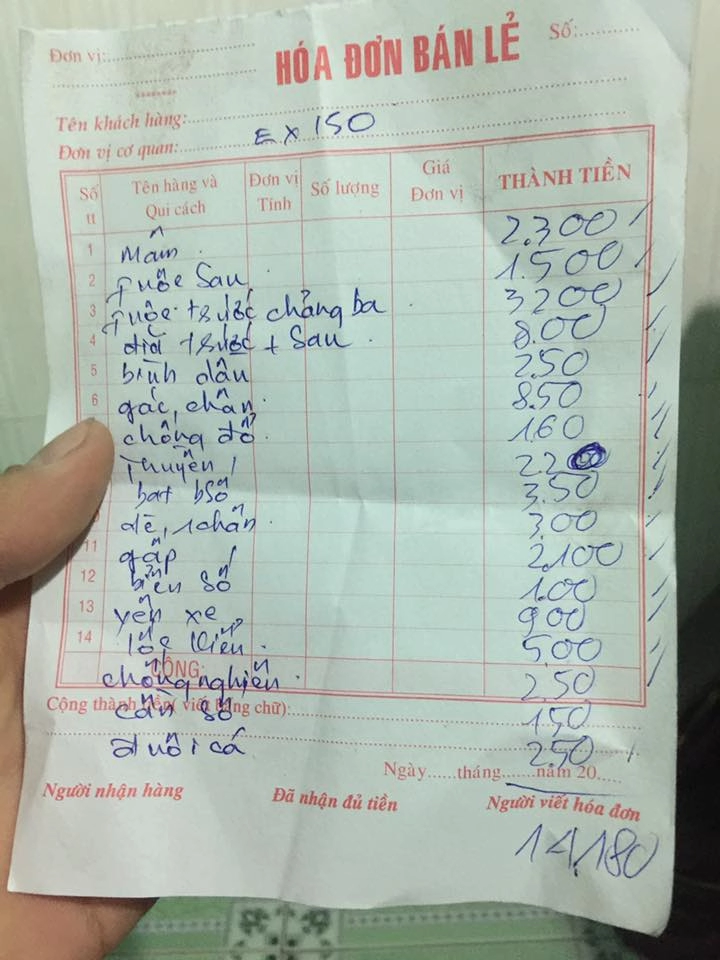 Đơn vị:
HÓA ĐƠN BÁN LẺ
Số:
Tên khách hàng:
Đơn vị cơ quan: EX 150
Số tt Tên hàng và Qui cách Đơn vị Tính Số lượng Giá Đơn vị THÀNH TIỀN
1 Mâm 2.300
2 Fuộc Sau 1.500
3 Fuộc trước chảng ba 3200
4 dĩa trước + Sau 8.00
5 bình dầu 2.50
6 gác, chân 8.50
chống đổ 1.60
Thuyền 2.2
bat bSố 3.50
dè, chắn 3.00
11 gấp 2.100
12 biển số 1.00
13 yên xe 900
14 lốc kiểng 5.00
TỔNG:
chống nghiên 2.50
Cộng thành tiền( viết bằng chữ):
cần số 1.50
đuôi cá 2.50
Ngày.....tháng.......năm 20....
Người nhận hàng Đã nhận đủ tiền Người viết hóa đơn
14.180